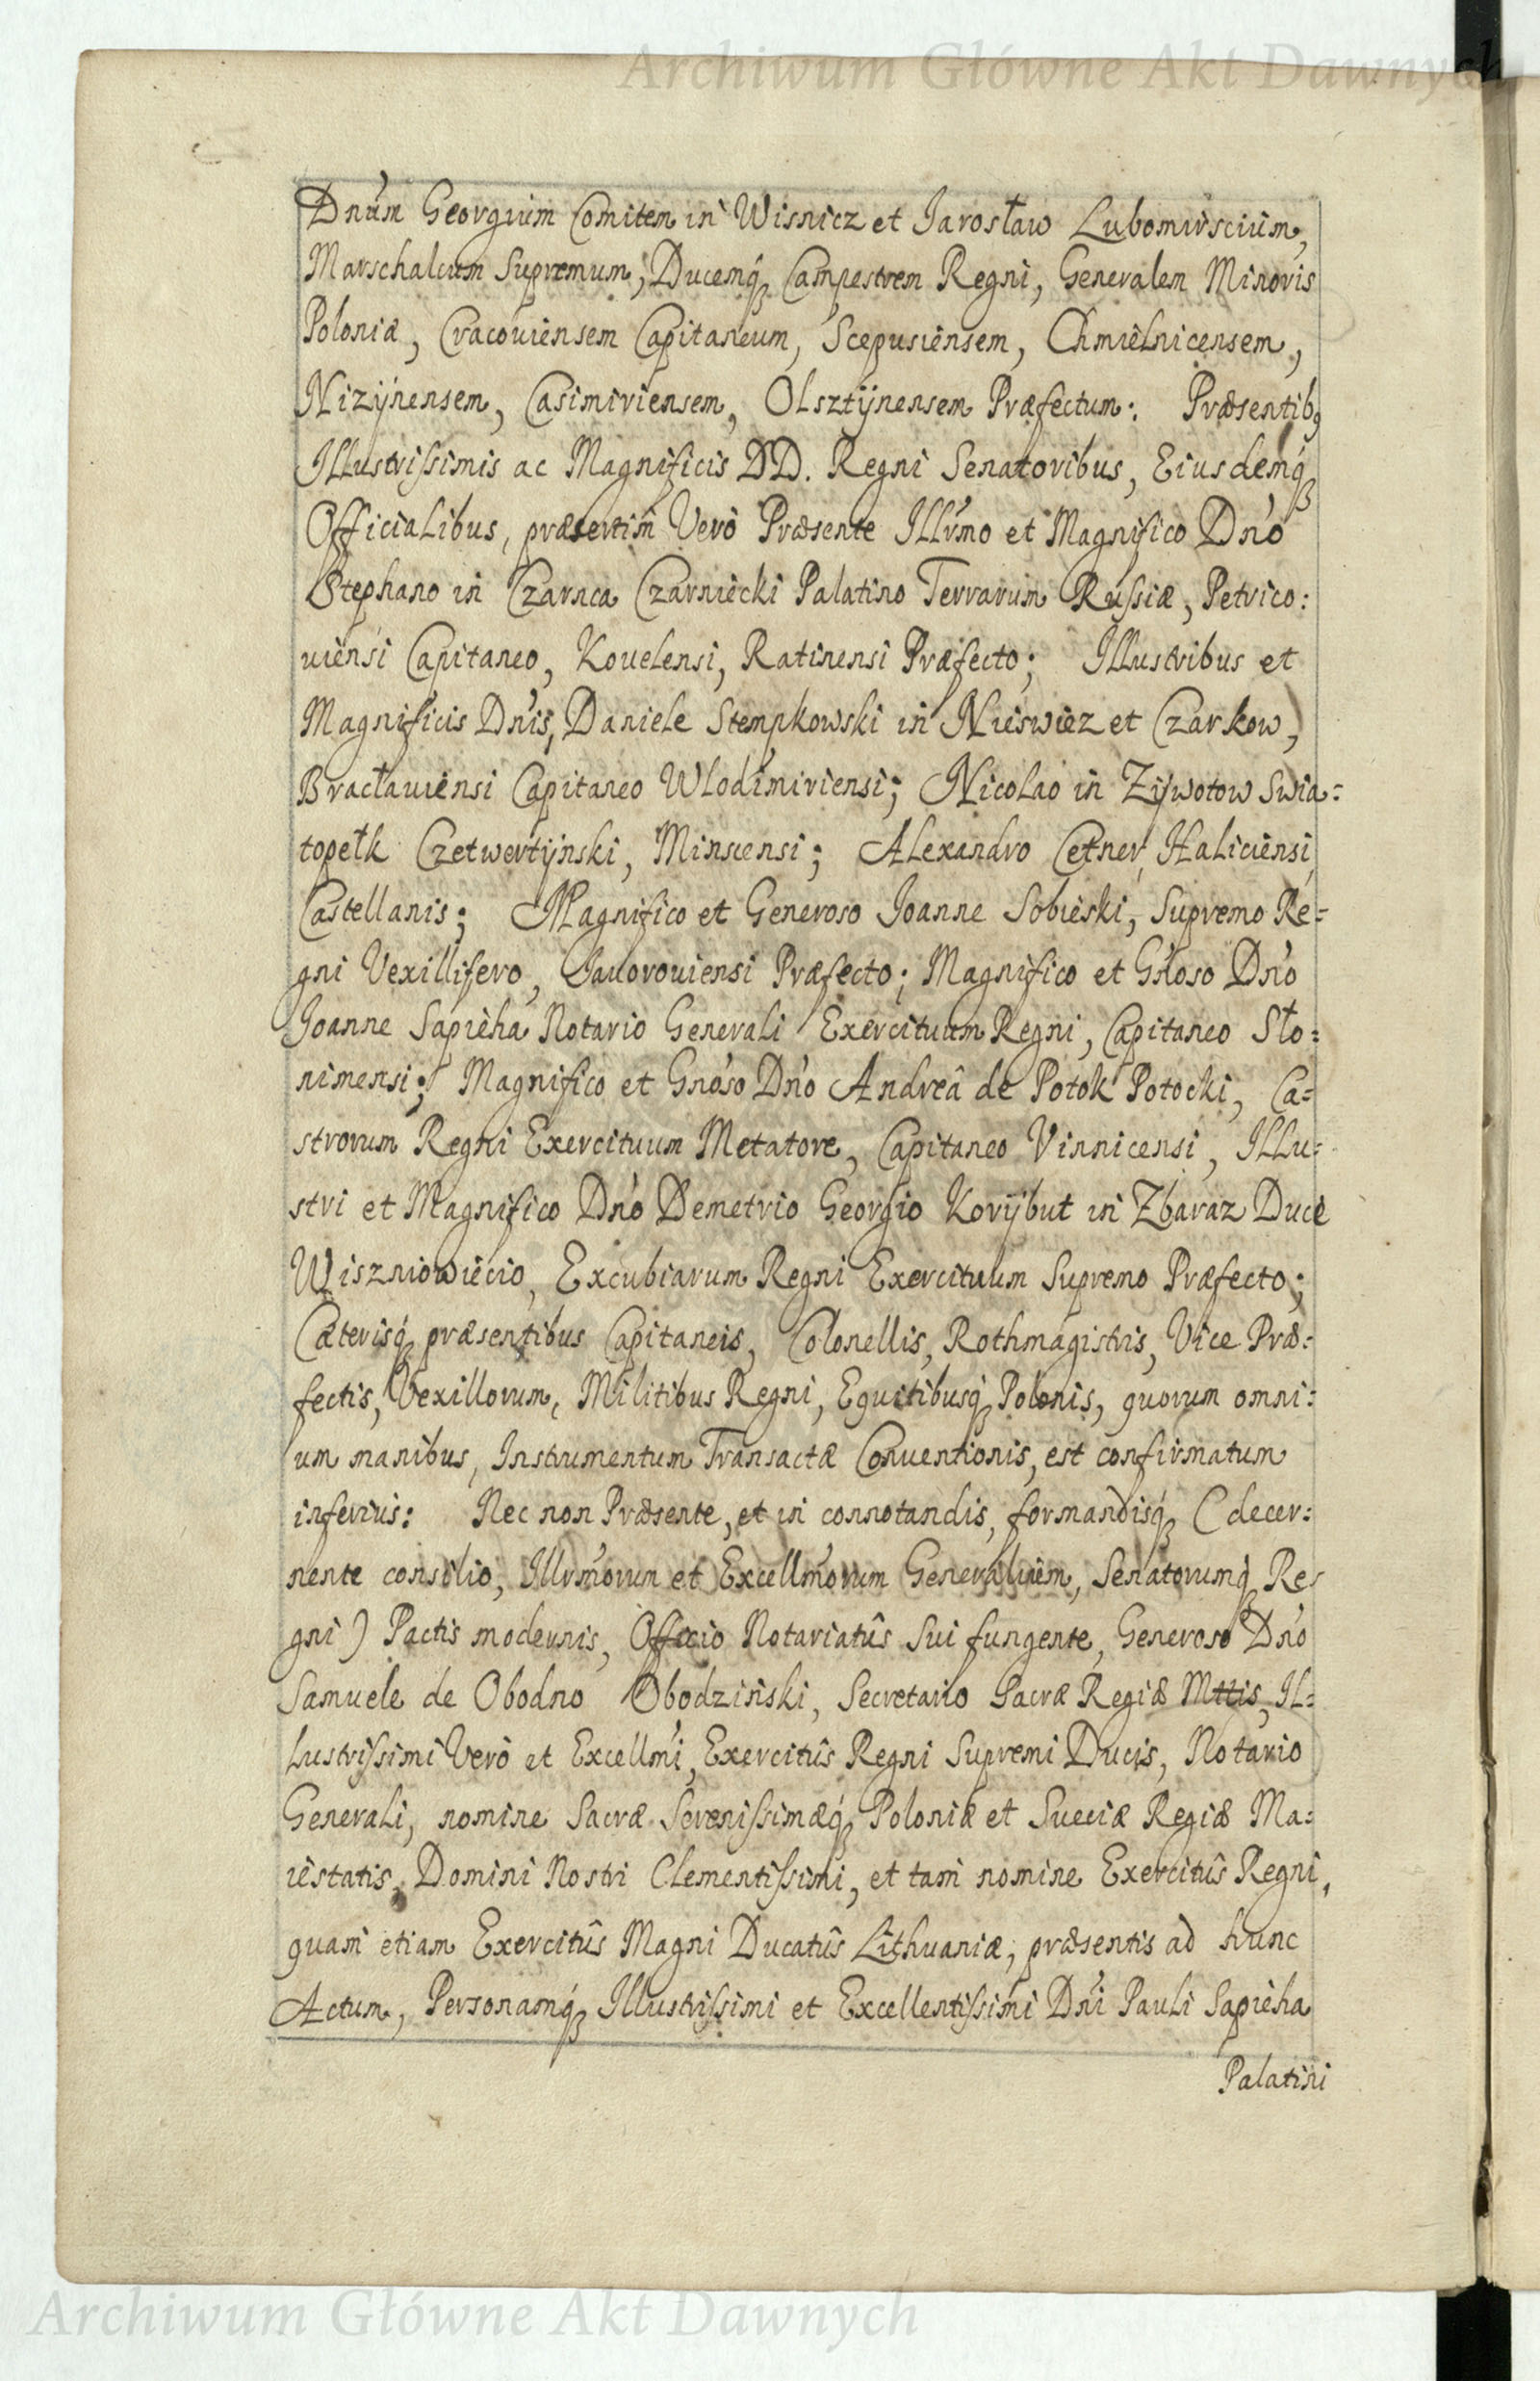 Archiwum Główne Akt Dawnych
Dnum Georgium Comitem in Wisnicz et Jarosław Lubomirscium,
Marschalcum Supremum, Ducemq́ꝫ Campestrem Regni, Generalem Minoris
Poloniæ, Cracouiensem Capitaneum, Scepusiensem, Chmielnicensem,
Nizÿnensem, Casimiriensem, Olsztÿnensem Præfectum: Præsentibꝫ
Illustrißimis ac Magnificis DD. Regni Senatoribus, Eiusdemq́ꝫ
Officialibus, præsertim Verò Præsente Illr̃mo et Magnifico Dño
Stephano in Czarnca Czarniecki Palatino Terrarum Rußiæ, Petrico:
uiensi Capitaneo, Kouelensi, Ratinensi Præfecto; Illustribus et
Magnificis Dñis, Daniele Stempkowski in Nieswiez et Czarkow,
Bracłauiensi Capitaneo Wlodimiriensi; Nicolao in Ziÿwotow Swia:
topełk Czetwertÿnski, Minscensi; Alexandro Cetner, Haliciensi,
Castellanis; Magnifico et Generoso Joanne Sobieski, Supremo Re=
gni Vexillifero, Jauorouiensi Præfecto; Magnifico et Gñoso Dño
Joanne Sapieha Notario Generali Exercituum Regni, Capitaneo Sło:
nimensi; Magnifico et Gnõso Dño Andreâ de Potok Potocki, Ca=
strorum Regni Exercituum Metatore, Capitaneo Vinnicensi, Illu=
stri et Magnifico Dño Demetrio Georgio Korÿbut in Zbaraz Duce
Wiszniowiecio, Excubiarum Regni Exercituum Supremo Præfecto;
Cæterisq́ꝫ præsentibus Capitaneis, Colonellis, Rothmagistris, Vice Præ:
fectis, Vexillorum, Militibus Regni, Equitibusq́ꝫ Polonis, quorum omni:
um manibus, Instrumentum Transactæ Conuentionis, est confirmatum
inferius: Nec non Præsente, et in connotandis, formandisq́ꝫ (decer:
nente consilio, Illr̃morum et Excellm̃orum Generalium, Senatorumq́ꝫ Re=
gni) Pactis modernis, Officio Notariatûs Sui fungente, Generoso Dño
Samuele de Obodno Obodziński, Secretario Sacræ Regiæ Mttis, Il=
lustrißimi Verò et Excellm̃i, Exercitûs Regni Supremi Ducis, Notario
Generali, nomine Sacræ Serenißimæq́ꝫ Poloniæ et Sueciæ Regiæ Ma:
iestatis, Domini Nostri Clementißimi, et tam nomine Exercitûs Regni,
quam etiam Exercitûs Magni Ducatûs Lithuaniæ, præsentis ad hunc
Actum, Personamq́ꝫ Illustrißimi et Excellentißimi Dñi Pauli Sapieha
Palatini
Archiwum Główne Akt Dawnych